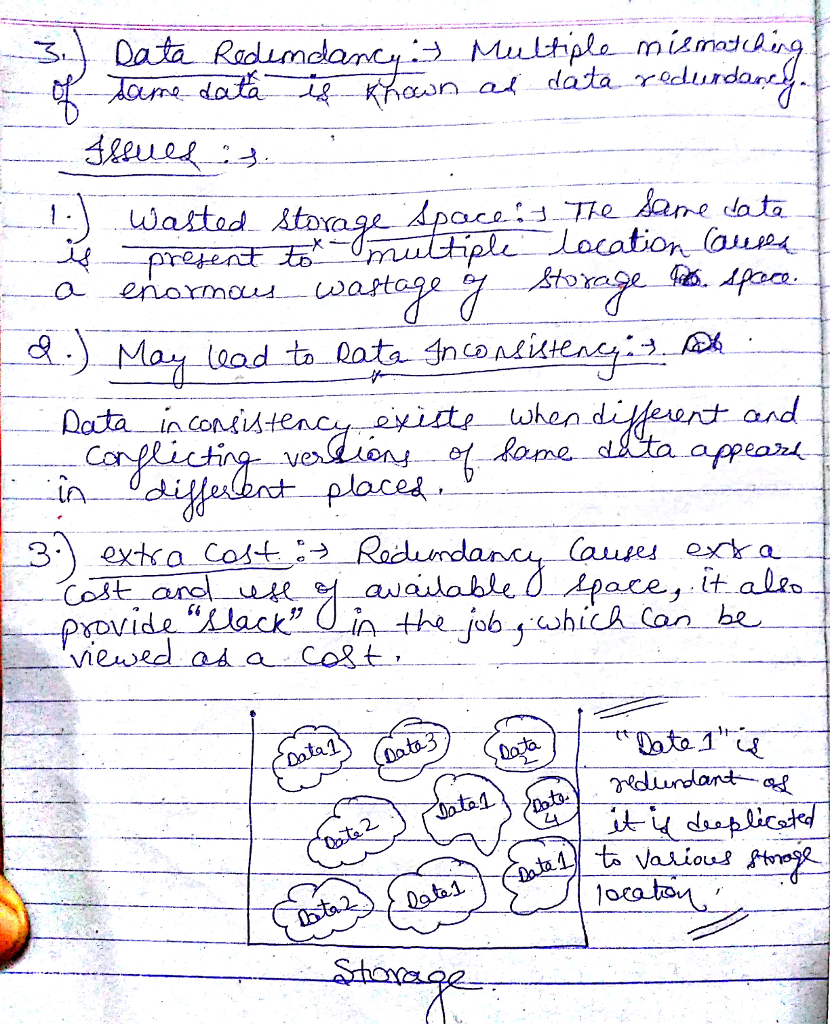 3.) Data Redundancy :→ Multiple mismatching
of same data is known as data redundancy.
Issues :→.
1.) Wasted storage space :→ The same data
is present to multiple location causes
a enormous wastage of storage space.
2.) May lead to Data Inconsistency :→.
Data inconsistency exists when different and
conflicting versions of same data appears
in different places.
3.) extra cost :→ Redundancy causes extra
cost and use of available space, it also
provide "slack" in the job, which can be
viewed as a cost.
Data 1 Data 3 Data 2
Data 2 Data 1 Data 4
Data 2 Data 1 Data 1
"Data 1" is
redundant as
it is deeplicated
to various storage
location.
Storage